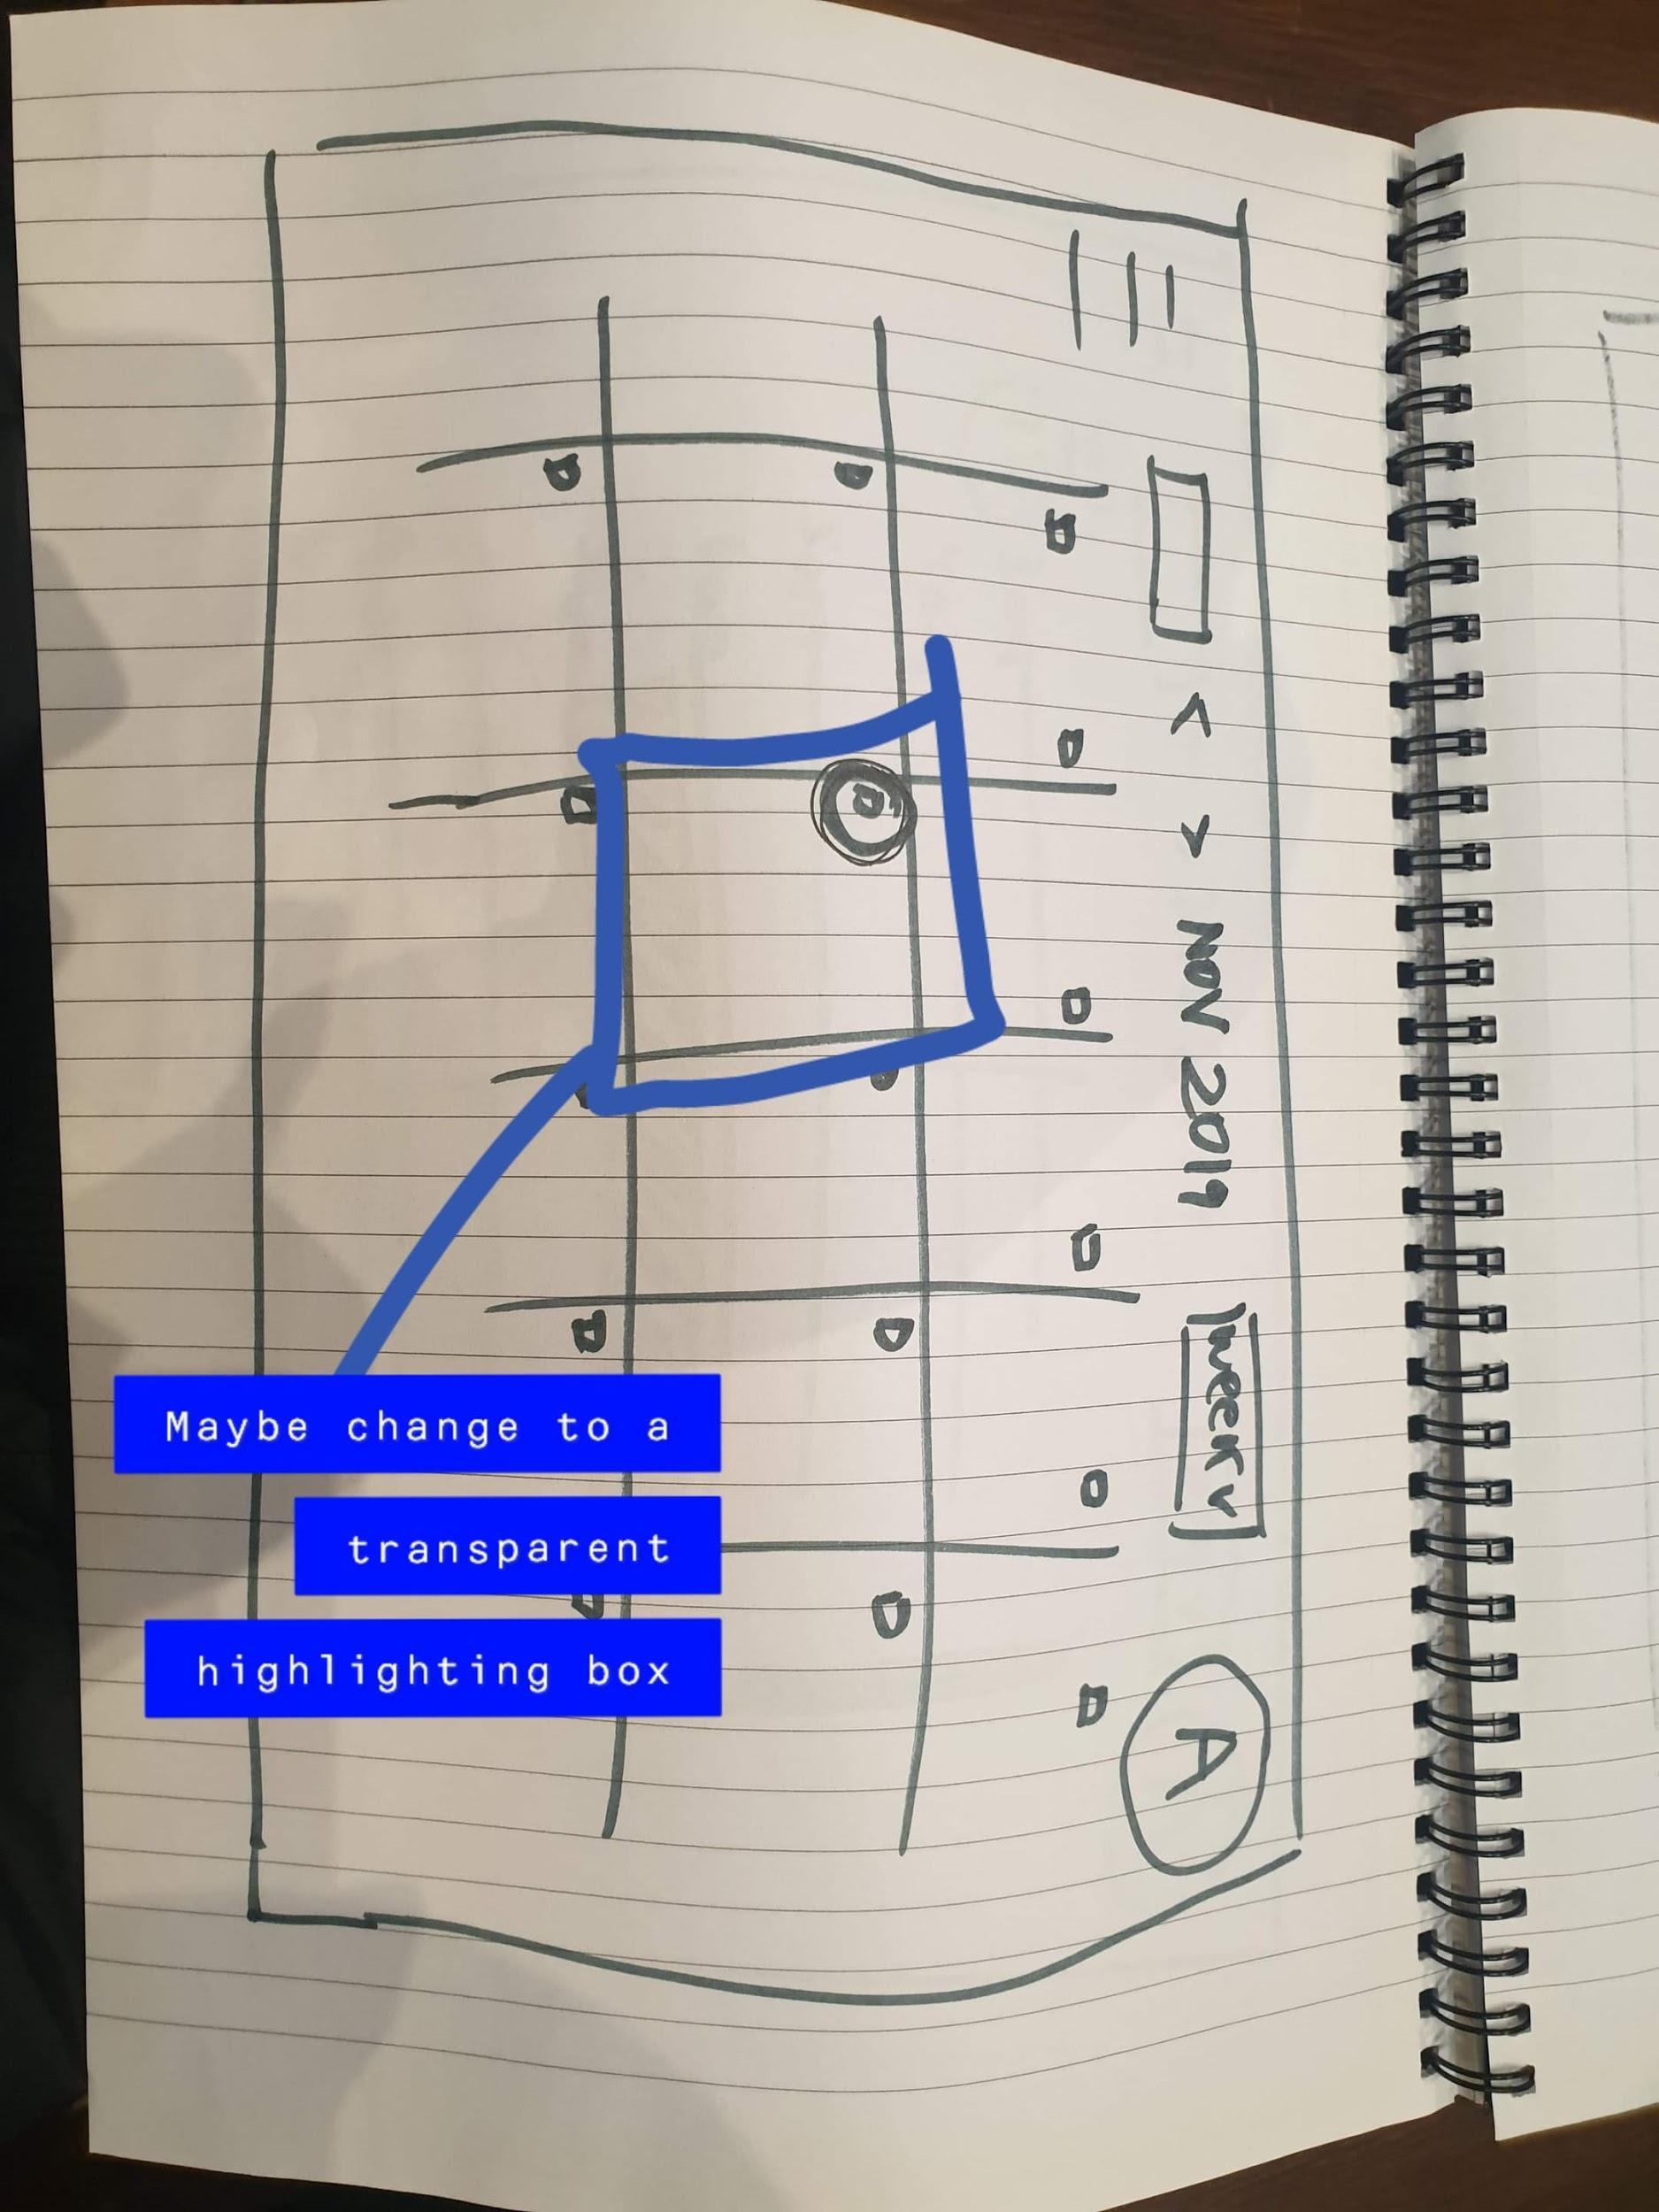 < > NOV 2019 WEEK v A
Maybe change to a
transparent
highlighting box